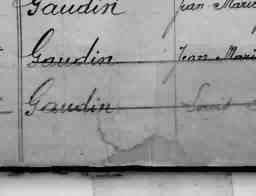 Gaudin Jean Marie
Gaudin Jean Marie
Gaudin Louis